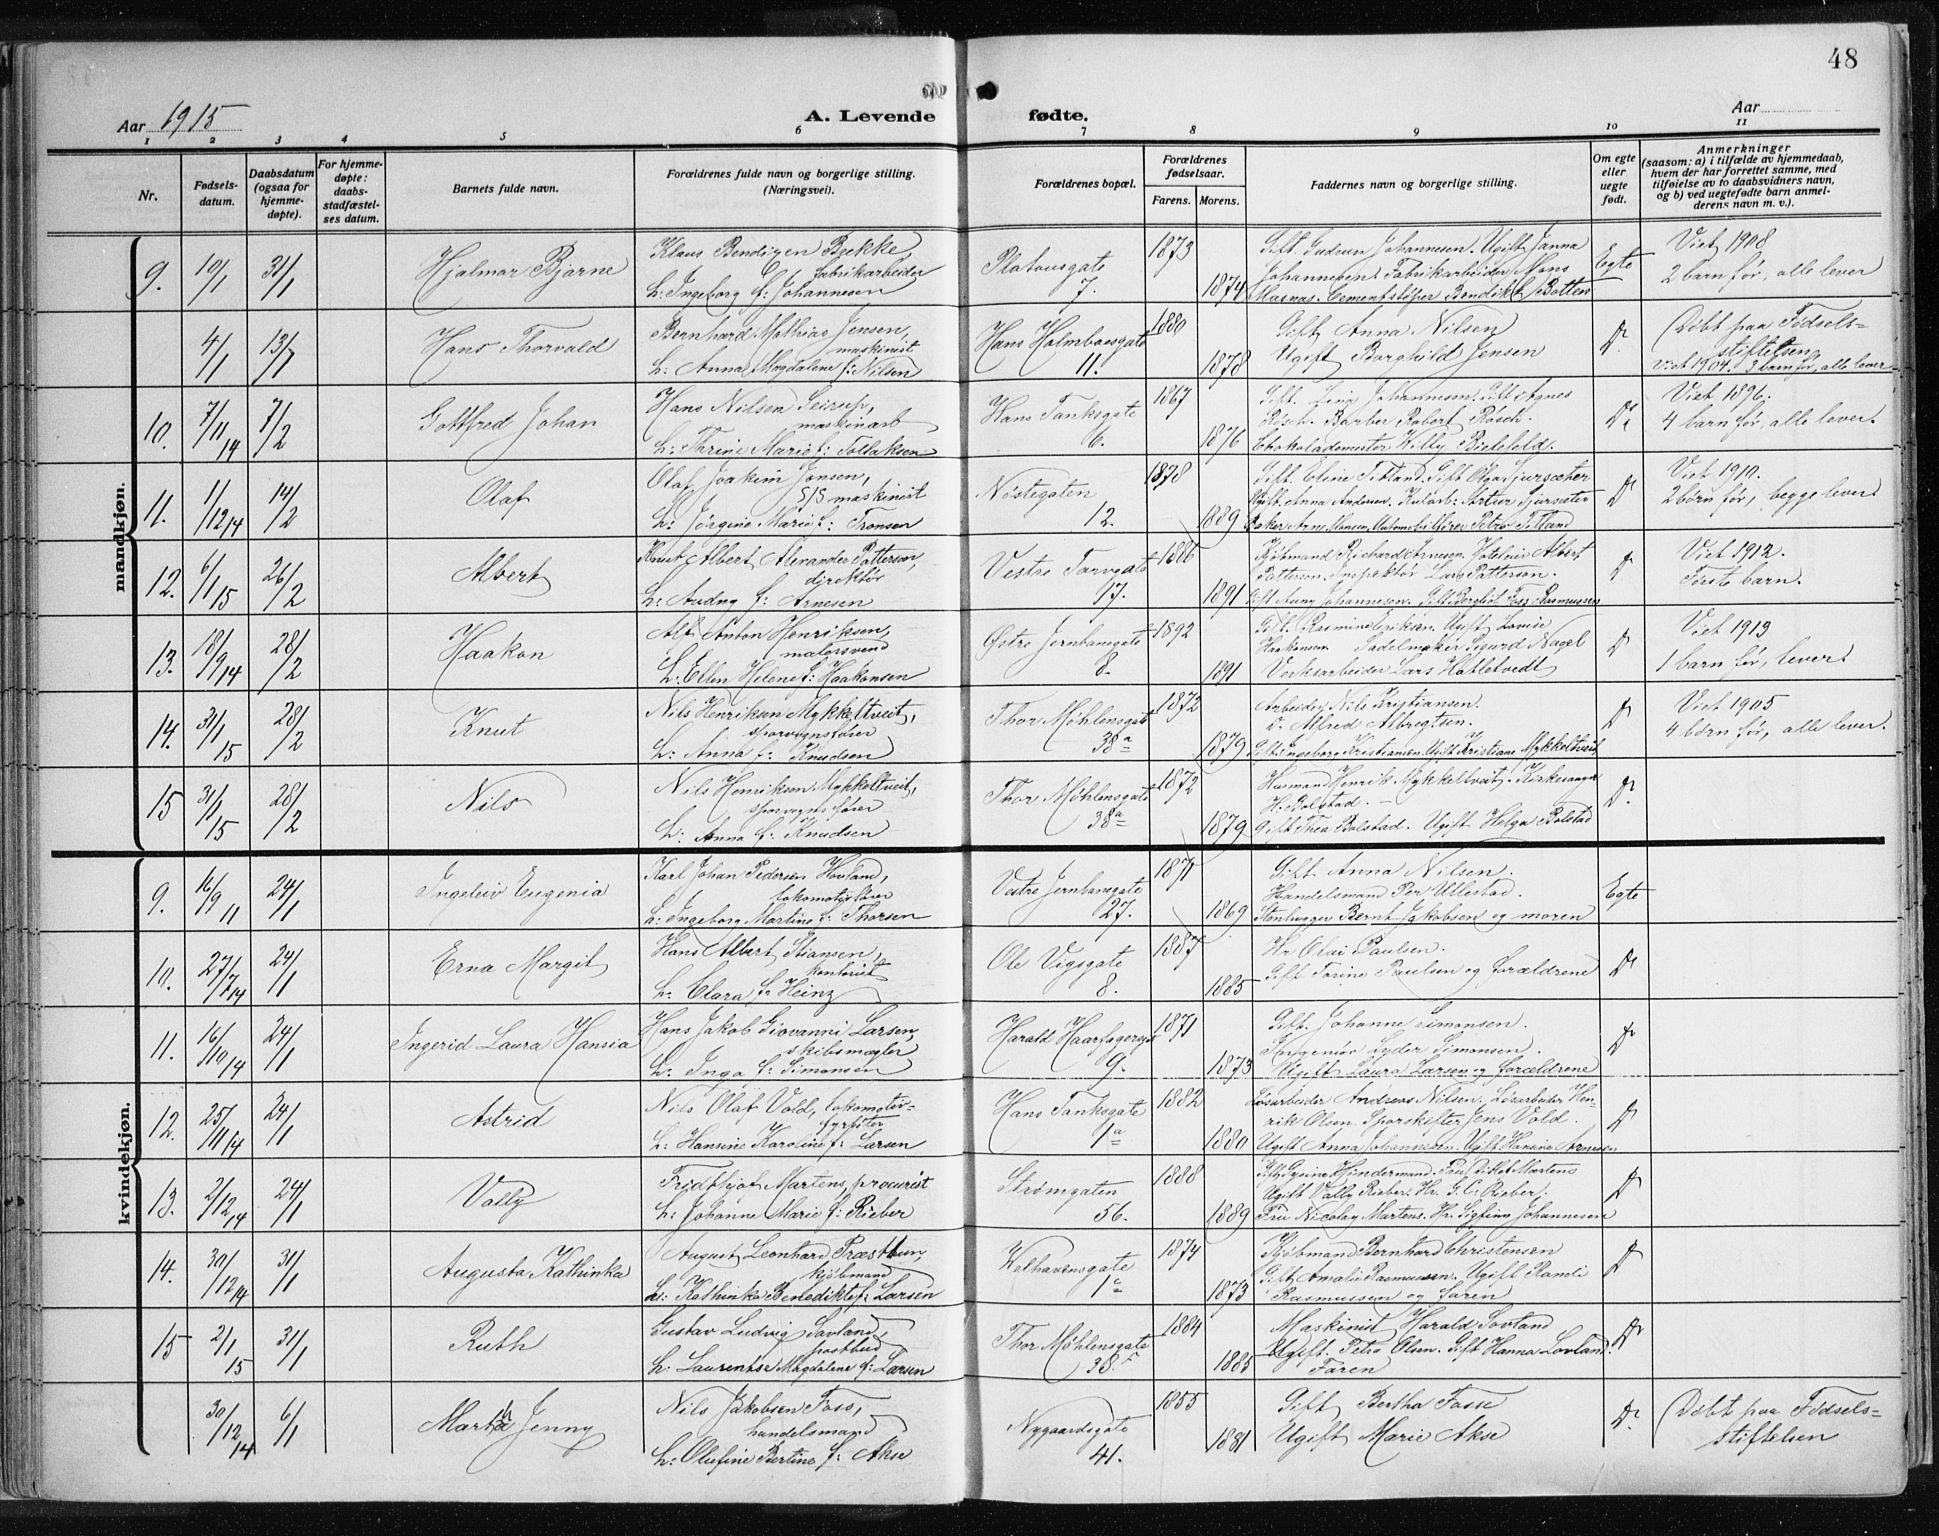 48
Aar 1915
A. Levende fødte.
Aar
1 2 3 4 5 6 7 8 9 10 11
Nr.
Fødsels-
datum.
Daabsdatum
(ogsaa for
hjemme-
døpte).
For hjemme-
døpte:
daabs-
stadfæstel-
ses datum.
Barnets fulde navn.
Forældrenes fulde navn og borgerlige stilling.
(Næringsvei).
Forældrenes bopæl.
Forældrenes
fødselsaar.
Farens. Morens.
Faddernes navn og borgerlige stilling.
Om egte
eller
uegte
født.
Anmerkninger
(saasom: a) i tilfælde av hjemmedaab,
hvem der har forrettet samme, med
tilføielse av to daabsvidners navn,
og b) ved uegtefødte barn anmel-
derens navn m. v.).
mandkjøn.
9. 10/1 31/1 Hjalmar Bjarne
Klaus Bendixen Bekke,
fabrikarbeider
h: Ingeborg f: Johannesen
Platousgate
7.
1873
1874
Gift Gudrun Johannesen. Ugift Janna
Johannesen. Fabrikarbeider Mons
Masnas. Cementstøper Bendik Botten
Egte
Viet 1908
2 barn før, alle lever
4/1 13/1 Hans Thorvald
Bernhard Mathias Jensen,
maskinist
h: Anna Magdalene f: Nilsen
Hans Holmboesgate
11.
1880
1878
Gift Anna Nilsen
Ugift Borghild Jensen
Do
Døbt paa Fødsels-
stiftelsen
Viet 1904. 3 barn før, alle lever
10. 7/11 14 7/2 Gottfred Johan
Hans Nilsen Seirup,
maskinarb
h: Thrine Marie f: Tollaksen
Hans Tanksgate
6.
1867
1876
Gift Lina Johannesen. Gift Agnes
Rösch. Barber Robert Rösch.
Chokolademester Willy Bielefeld.
Do
Viet 1896.
4 barn før, alle lever.
11. 1/12 14 14/2 Olaf
Olaf Joakim Jensen,
S/S maskinist
h: Jørgine Marie f: Tronsen
Nøstegaten
12.
1878
1889
Gift Eline Titland. Gift Olga Sjursæther
Ugift Anna Andersen. Kularb: Artur Sjursæter
Baker Arne Monsen. Automobilfører Petro Titland
Do
Viet 1910.
2 børn før, begge lever
12. 6/1 15 26/2 Albert
Knut Albert Alexander Patterson,
direktør
h: Audny f: Arnesen
Vestre Torvgate
17.
1886
1891
Kjøbmand Richard Arnesen. Hoteleier Albert
Patterson. Inspektør Lars Patterson.
Gift Aung Johannesen. Gift Bergliot Foss Rasmussen
Do
Viet 1912.
Første barn.
13. 18/9 14 28/2 Haakon
Alf Anton Henriksen,
malersvend
h: Ellen Helene f: Haakonsen
Østre Jernbanegate
8.
1892
1891
Gift Rasmine Eriksen. Ugift Lovise
Haakonsen. Sadelmaker Sigurd Nagel
Verksarbeider Lars Hatletvedt
Do
Viet 1913
1 barn før, lever
14. 31/1 15 28/2 Knut
Nils Henriksen Mykkeltveit,
sporvognsfører
h: Anna f: Knudsen
Thor Møhlensgate
38a
1872
1879
Arbeider Nils Kristiansen.
Do Alfred Albregtsen.
Gift Ingeborg Kristiansen. Ugift Kristiane Mykkeltveit
Do
Viet 1905
4 børn før, alle lever.
15 31/1 15 28/2 Nils
Nils Henriksen Mykkeltveit,
sporvogns fører
h: Anna f: Knudsen
Thor Møhlensgate
38a
1872
1879
Husmand Henrik Mykkeltveit. Kirkesanger
H. Bolstad.
Gift Thea Bolstad. Ugift Helga Bolstad
Do
kvindekjøn.
9. 16/9 11 24/1 Ingeleiv Eugenia
Karl Johan Pedersen Hovland,
lokomotivfører
h: Ingeborg Martine f: Thorsen
Vestre Jernbanegate
27.
1871
1869
Gift Anna Nilsen.
Handelsmand Per Ullestad.
Stenhugger Bernt Jakobsen og moren
Egte
10. 27/7 14 24/1 Erna Margit
Hans Albert Stiansen,
kontorist
h: Clara f: Heinz
Ole Vigsgate
8.
1887
1885
Hr Olai Paulsen.
Gift Torine Paulsen og forældrene
Do
11. 16/10 14 24/1 Ingerid Laura Hansia
Hans Jakob Giovanni Larsen,
skibsmægler
h: Inga f: Simonsen
Harald Haarfagersgt
9.
1871
1873
Gift Johanne Simonsen.
Ingeniør Lyder Simonsen.
Ugift Laura Larsen og forældrene
Do
12. 25/11 14 24/1 Astrid
Nils Olaf Vold, lokomotiv-
fyrbøter
h: Hansine Karoline f: Larsen
Hans Tanksgate
1a
1882
1880
Løsarbeider Andreas Nilsen. Løsarbeider Hen-
rik Olsen. Sporskifter Jens Vold.
Ugift Anna Johannesen. Ugift Hansine Arnesen
Do
13. 2/12 14 24/1 Vally
Fridthjof Martens, procurist
h: Johanne Marie f: Rieber
Strømgaten
56.
1888
1889
Gift Gesine Hindermand. Fru Rikel Martens
Ugift Vally Rieber. Hr. G. C. Rieber.
Fru Nicolay Martens. Hr. Sigfinn Johannesen
Do
14. 30/12 14 31/1 Augusta Kathinka
August Leonhard Træsthun,
kjøbmand
h: Kathinka Benedikte f: Larsen
Welhavensgate
1c
1874
1873
Kjøbmand Bernhard Christensen
Gift Amalie Rasmussen. Ugift Randi
Rasmussen og faren
Do
15 2/1 15 31/1 Ruth
Gustav Ludvig Lovland,
postbud
h: Laurentse Magdalene f: Larsen
Thor Møhlensgate
38F
1884
1885
Maskinist Harald Lovland
Ugift Petra Olsen. Gift Hanna Lovland.
Faren
Do
30/12 14 6/1 Martha Jenny
Nils Jakobsen Foss,
handelsmand
h: Olufine Bertine f: Akse
Nygaardsgate
41.
1855
1881
Gift Bertha Fosse
Ugift Marie Akse
Do
Døbt paa Fødsels-
stiftelsen